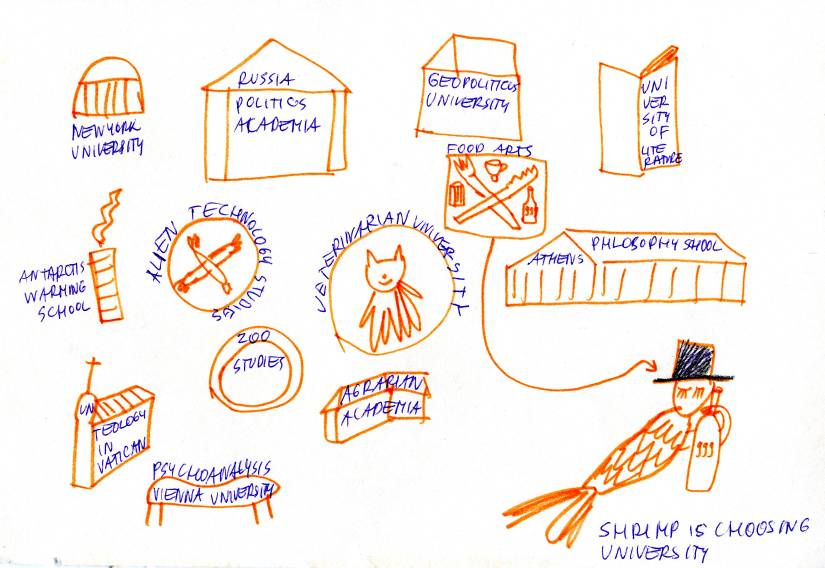 NEWYORK
UNIVERSITY
RUSSIA
POLITICS
ACADEMIA
GEOPOLITICS
UNIVERSITY
UNI
VER
SITY
OF
LITE
RATURE
FOOD ARTS
999
ANTARCTIS
WARMING
SCHOOL
ALIEN TECHNOLOGY STUDIES
VETERINARIAN UNIVERSITY
ATHENS
PHLOSOPHY SHOOL
ZOO
STUDIES
AGRARIAN
ACADEMIA
UNI
TEOLOGY
IN
VATICAN
PSYCHOANALYSIS
VIENNA UNIVERSITY
999
SHRIMP IS CHOOSING
UNIVERSITY